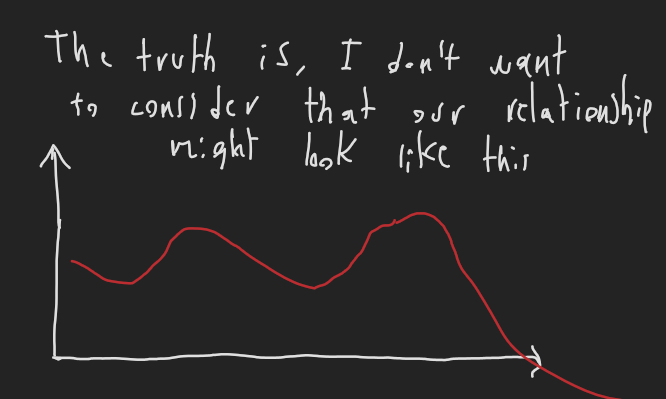 The truth is, I don't want
to consider that our relationship
might look like this